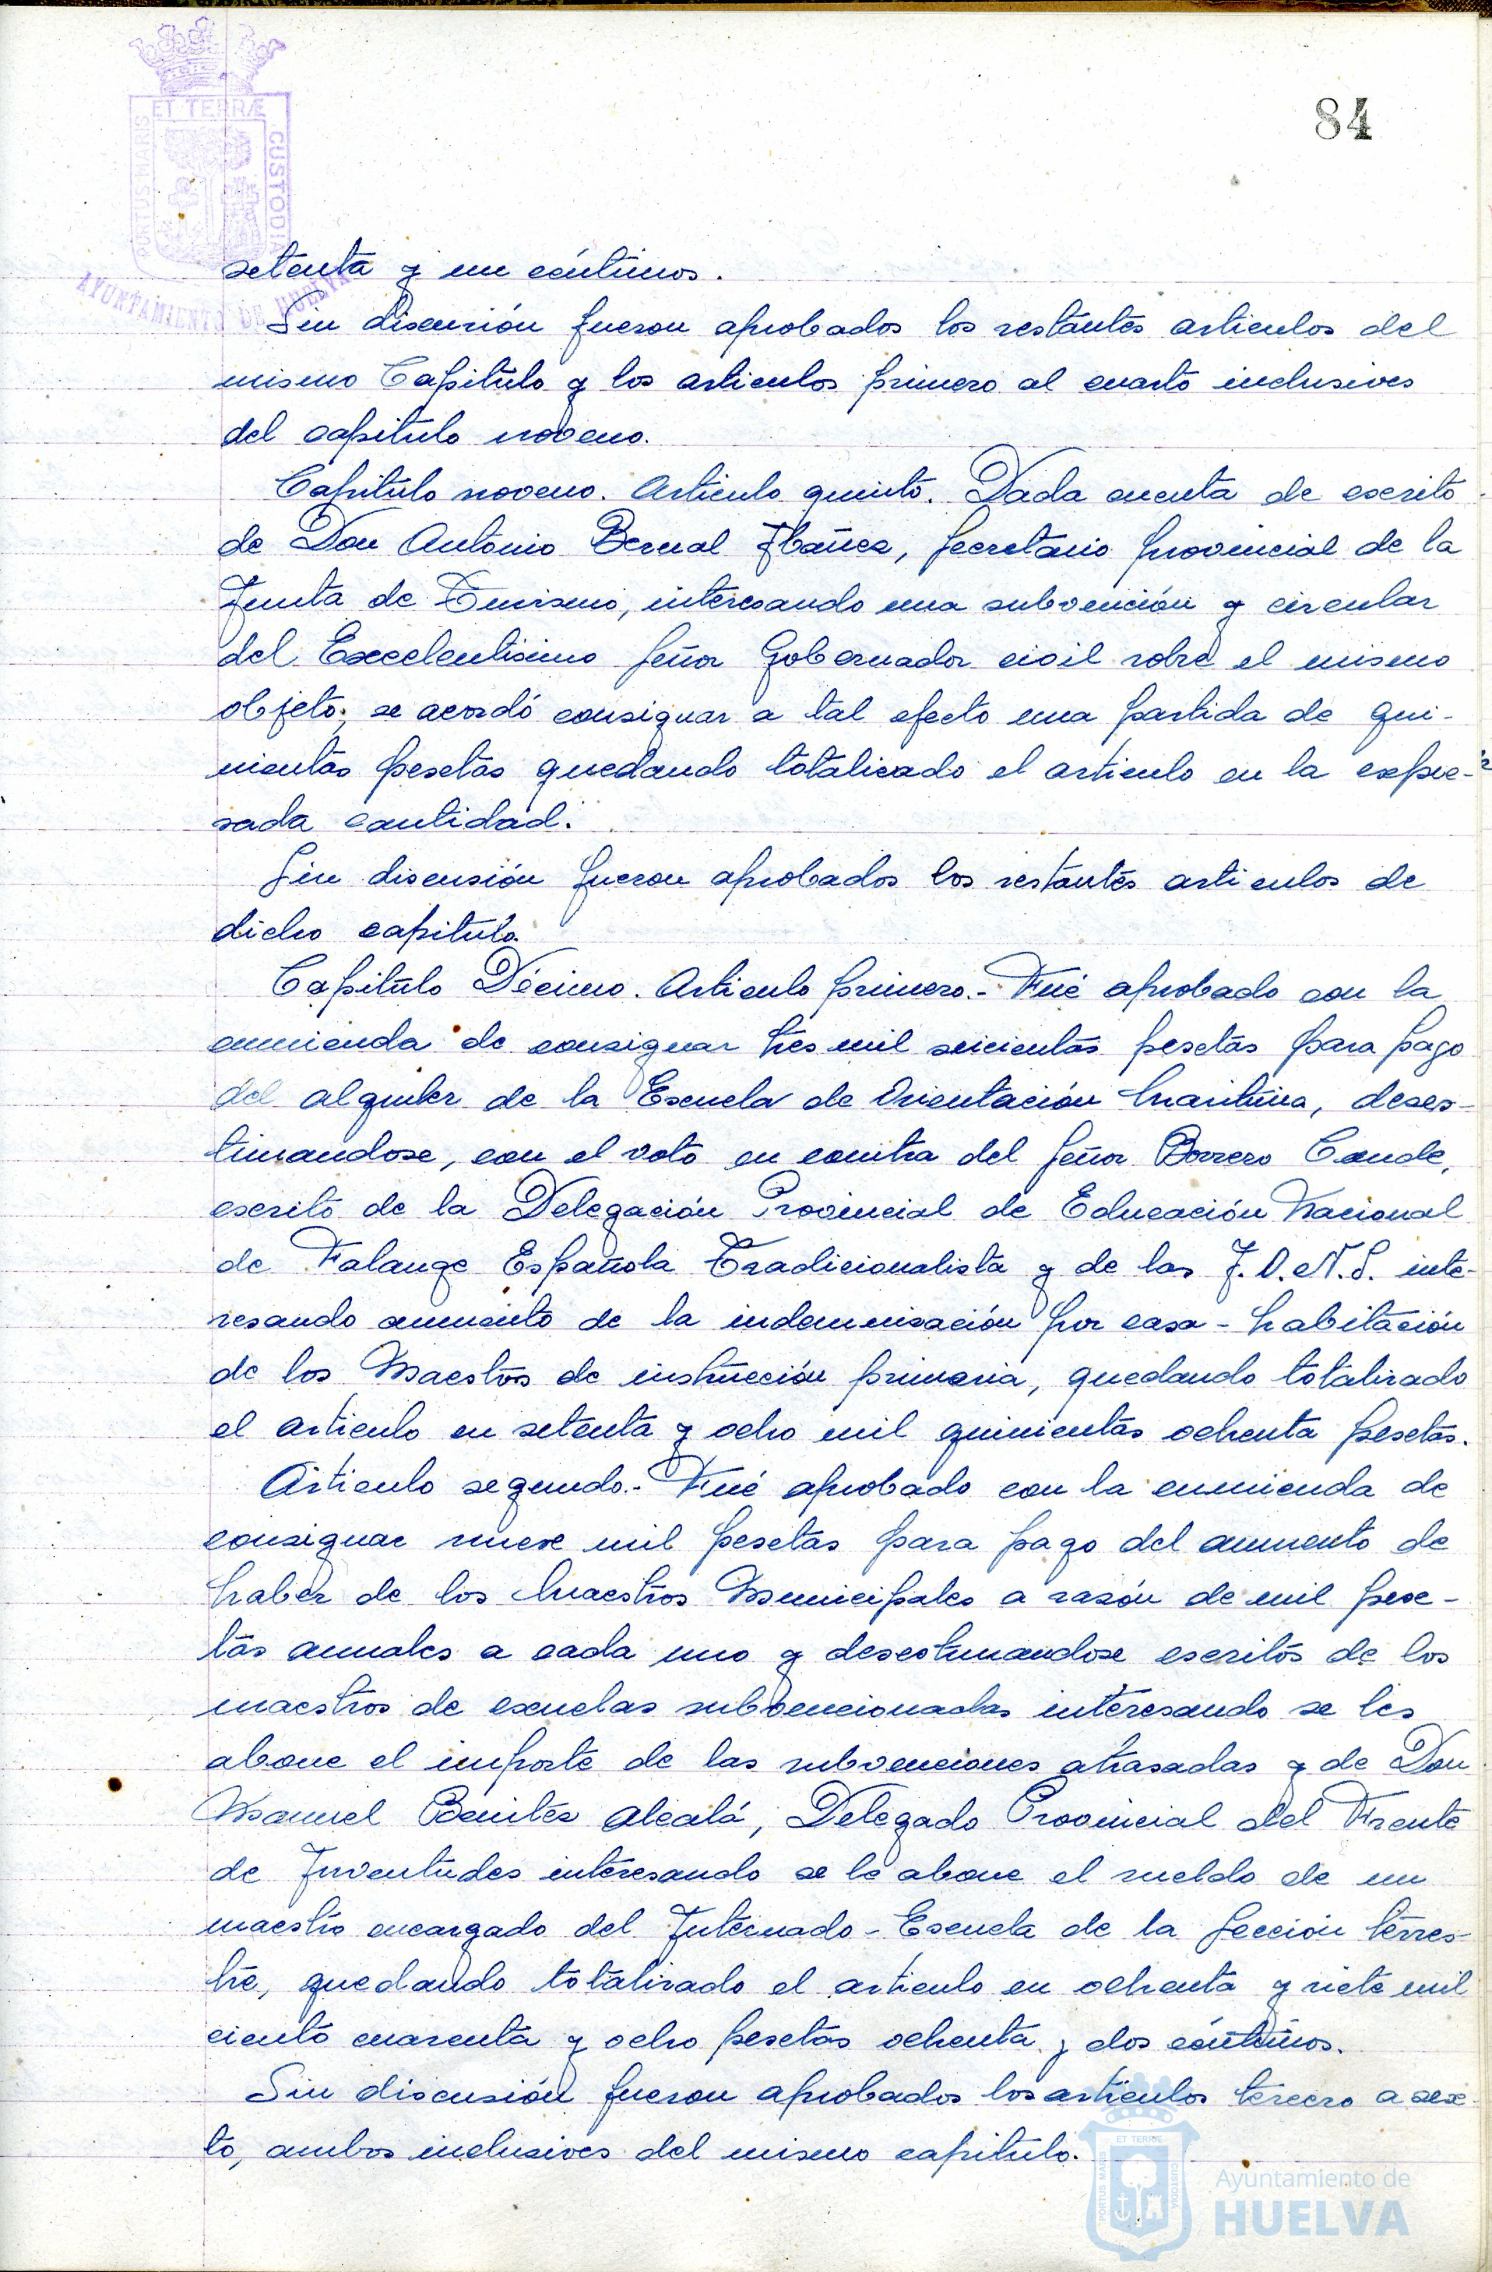 ET TERRÆ
PORTUS MARIS
CUSTODIA
AYUNTAMIENTO DE HUELVA
84
setenta y un céntimos.
Sin discusión fueron aprobados los restantes articulos del
mismo Capitulo y los articulos primero al cuarto inclusives
del capitulo noveno.
Capitulo noveno. Articulo quinto. Dada cuenta de escrito
de Don Antonio Bernal Ibañez, Secretario provincial de la
Junta de Turismo, interesando una subvención y circular
del Excelentisimo Señor Gobernador civil sobre el mismo
objeto; se acordó consignar a tal efecto una partida de qui-
nientas pesetas quedando totalizado el articulo en la expre-
sada cantidad.
Sin discusión fueron aprobados los restantes articulos de
dicho capitulo.
Capitulo Décimo. Articulo primero.- Fué aprobado con la
enmienda de consignar tres mil seicientas pesetas para pago
del alquiler de la Escuela de Orientación Maritima, deses-
timandose, con el voto en contra del Señor Borrero Conde,
escrito de la Delegación Provincial de Educación Nacional
de Falange Española Tradicionalista y de las J.O.N.S. inte-
resando aumento de la indemnización por casa-habitación
de los Maestros de instrucción primaria, quedando totalizado
el articulo en setenta y ocho mil quinientas ochenta pesetas.
Articulo segundo.- Fué aprobado con la enmienda de
consignar nueve mil pesetas para pago del aumento de
haber de los Maestros Municipales a razón de mil pese-
tas anuales a cada uno y desestimandose escritos de los
maestros de escuelas subvencionadas interesando se les
abone el importe de las subvenciones atrasadas y de Don
Manuel Benitez Alcalá, Delegado Provincial del Frente
de Juventudes interesando se le abone el sueldo de un
maestro encargado del Internado-Escuela de la Sección terres-
tre, quedando totalizado el articulo en ochenta y siete mil
ciento cuarenta y ocho pesetas ochenta y dos céntimos.
Sin discusión fueron aprobados los articulos tercero a sex-
to, ambos inclusives del mismo capitulo.
ET TERRÆ
PORTUS MARIS
CUSTODIA
Ayuntamiento de
HUELVA